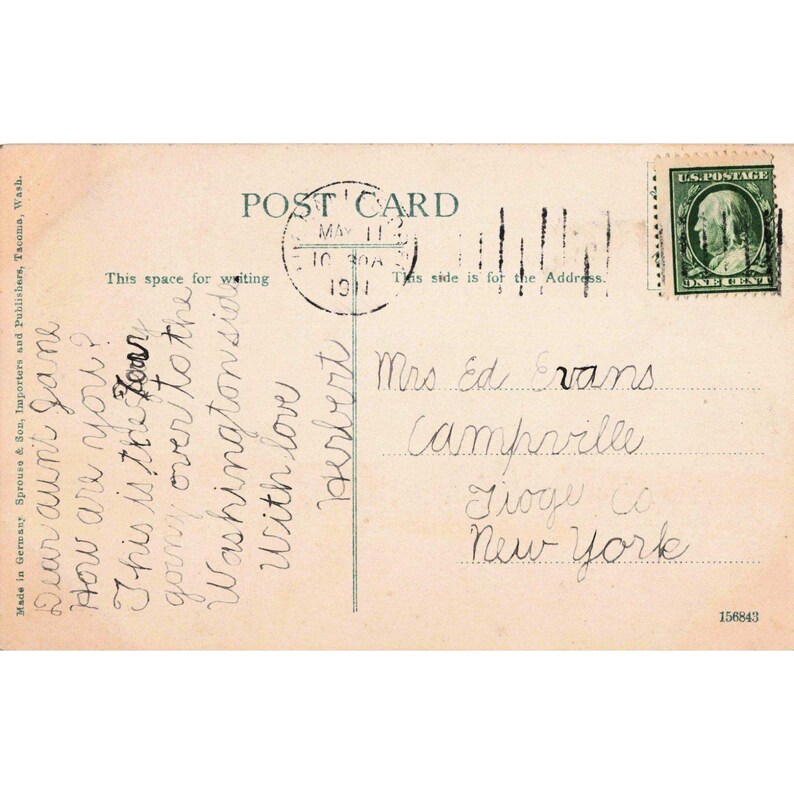 POST CARD
MAY 11
10 30A
1911
U.S. POSTAGE
ONE CENT
This space for writing
This side is for the Address.
Made in Germany Sprouse & Son, Importers and Publishers, Tacoma, Wash.
Dear aunt Jane
How are you?
This is the
going over to the
Washington side.
With love
Herbert
Mrs Ed Evans
Campville
Tioge Co
New York
156843